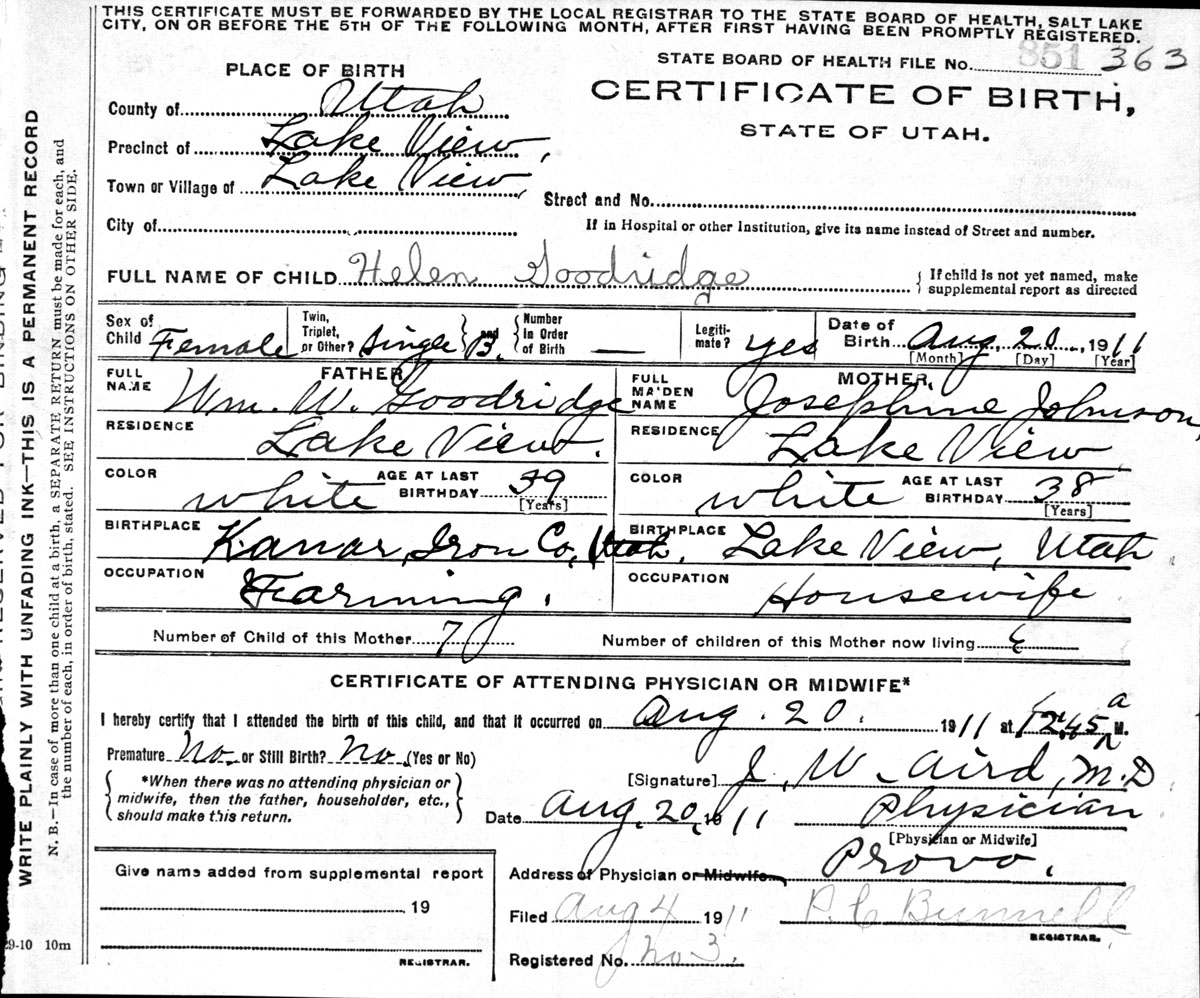 THIS CERTIFICATE MUST BE FORWARDED BY THE LOCAL REGISTRAR TO THE STATE BOARD OF HEALTH, SALT LAKE
CITY, ON OR BEFORE THE 5TH OF THE FOLLOWING MONTH, AFTER FIRST HAVING BEEN PROMPTLY REGISTERED.
STATE BOARD OF HEALTH FILE No. 851 363
PLACE OF BIRTH
CERTIFICATE OF BIRTH,
STATE OF UTAH.
County of Utah
Precinct of Lake View,
Town or Village of Lake View,
Street and No.
City of
If in Hospital or other Institution, give its name instead of Street and number.
FULL NAME OF CHILD Helen Goodridge { If child is not yet named, make
supplemental report as directed
Sex of Child Female Twin, Triplet, or Other? Single and 3. Number in Order of Birth — Legiti-mate? yes Date of Birth Aug. 20, 1911
[Month] [Day] [Year]
FATHER MOTHER,
FULL NAME Wm. W. Goodridge FULL MAIDEN NAME Josephine Johnson,
RESIDENCE Lake View. RESIDENCE Lake View,
COLOR white AGE AT LAST BIRTHDAY 39 [Years] COLOR white AGE AT LAST BIRTHDAY 38 [Years]
BIRTHPLACE Kanar, Iron Co, Utah. BIRTHPLACE Lake View, Utah
OCCUPATION Farming. OCCUPATION Housewife
Number of Child of this Mother 7 Number of children of this Mother now living
CERTIFICATE OF ATTENDING PHYSICIAN OR MIDWIFE*
I hereby certify that I attended the birth of this child, and that it occurred on Aug. 20. 1911 at 12:45 a M.
Premature No. or Still Birth? No. (Yes or No)
[Signature] J. W. Aird, M.D
*When there was no attending physician or
midwife, then the father, householder, etc.,
should make this return.
Date Aug. 20, 1911 Physician
[Physician or Midwife]
Address of Physician or Midwife Provo.
Give name added from supplemental report
19
REGISTRAR.
Filed Aug 4 1911 P. C Bunnell
REGISTRAR.
Registered No. no 3.
29-10 10m
WRITE PLAINLY WITH UNFADING INK—THIS IS A PERMANENT RECORD
N. B.—In case of more than one child at a birth, a SEPARATE RETURN must be made for each, and
the number of each, in order of birth, stated. SEE INSTRUCTIONS ON OTHER SIDE.